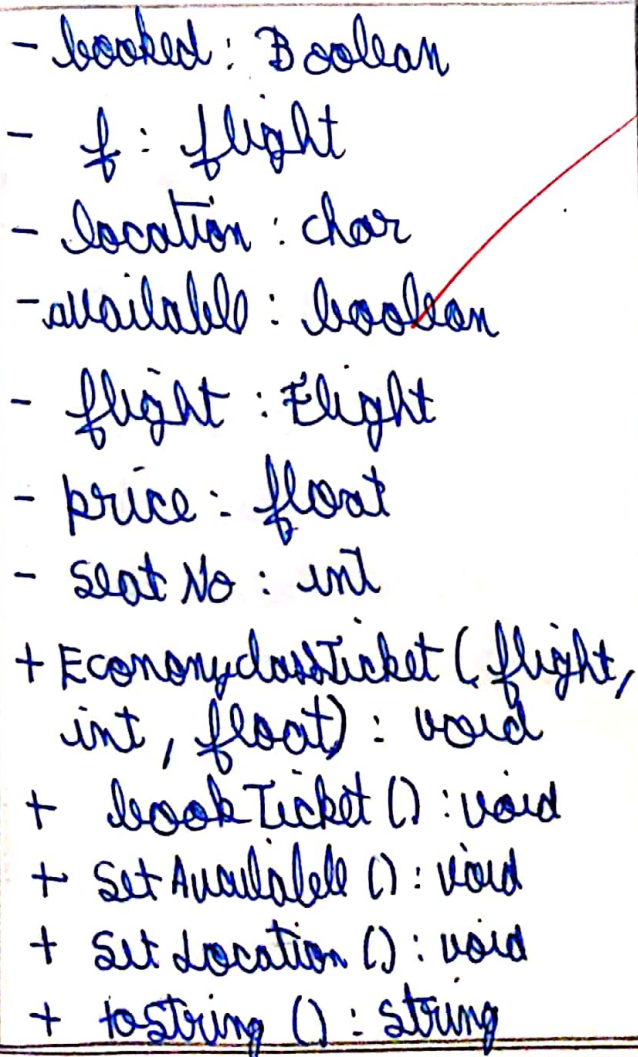 - booked : Boolean
- f : flight
- location : char
- available : boolean
- flight : Flight
- price : float
- seat No : int
+ EconomyclassTicket (flight,
int, float) : void
+ bookTicket () : void
+ SetAvailable () : void
+ Set Location () : void
+ toString () : string